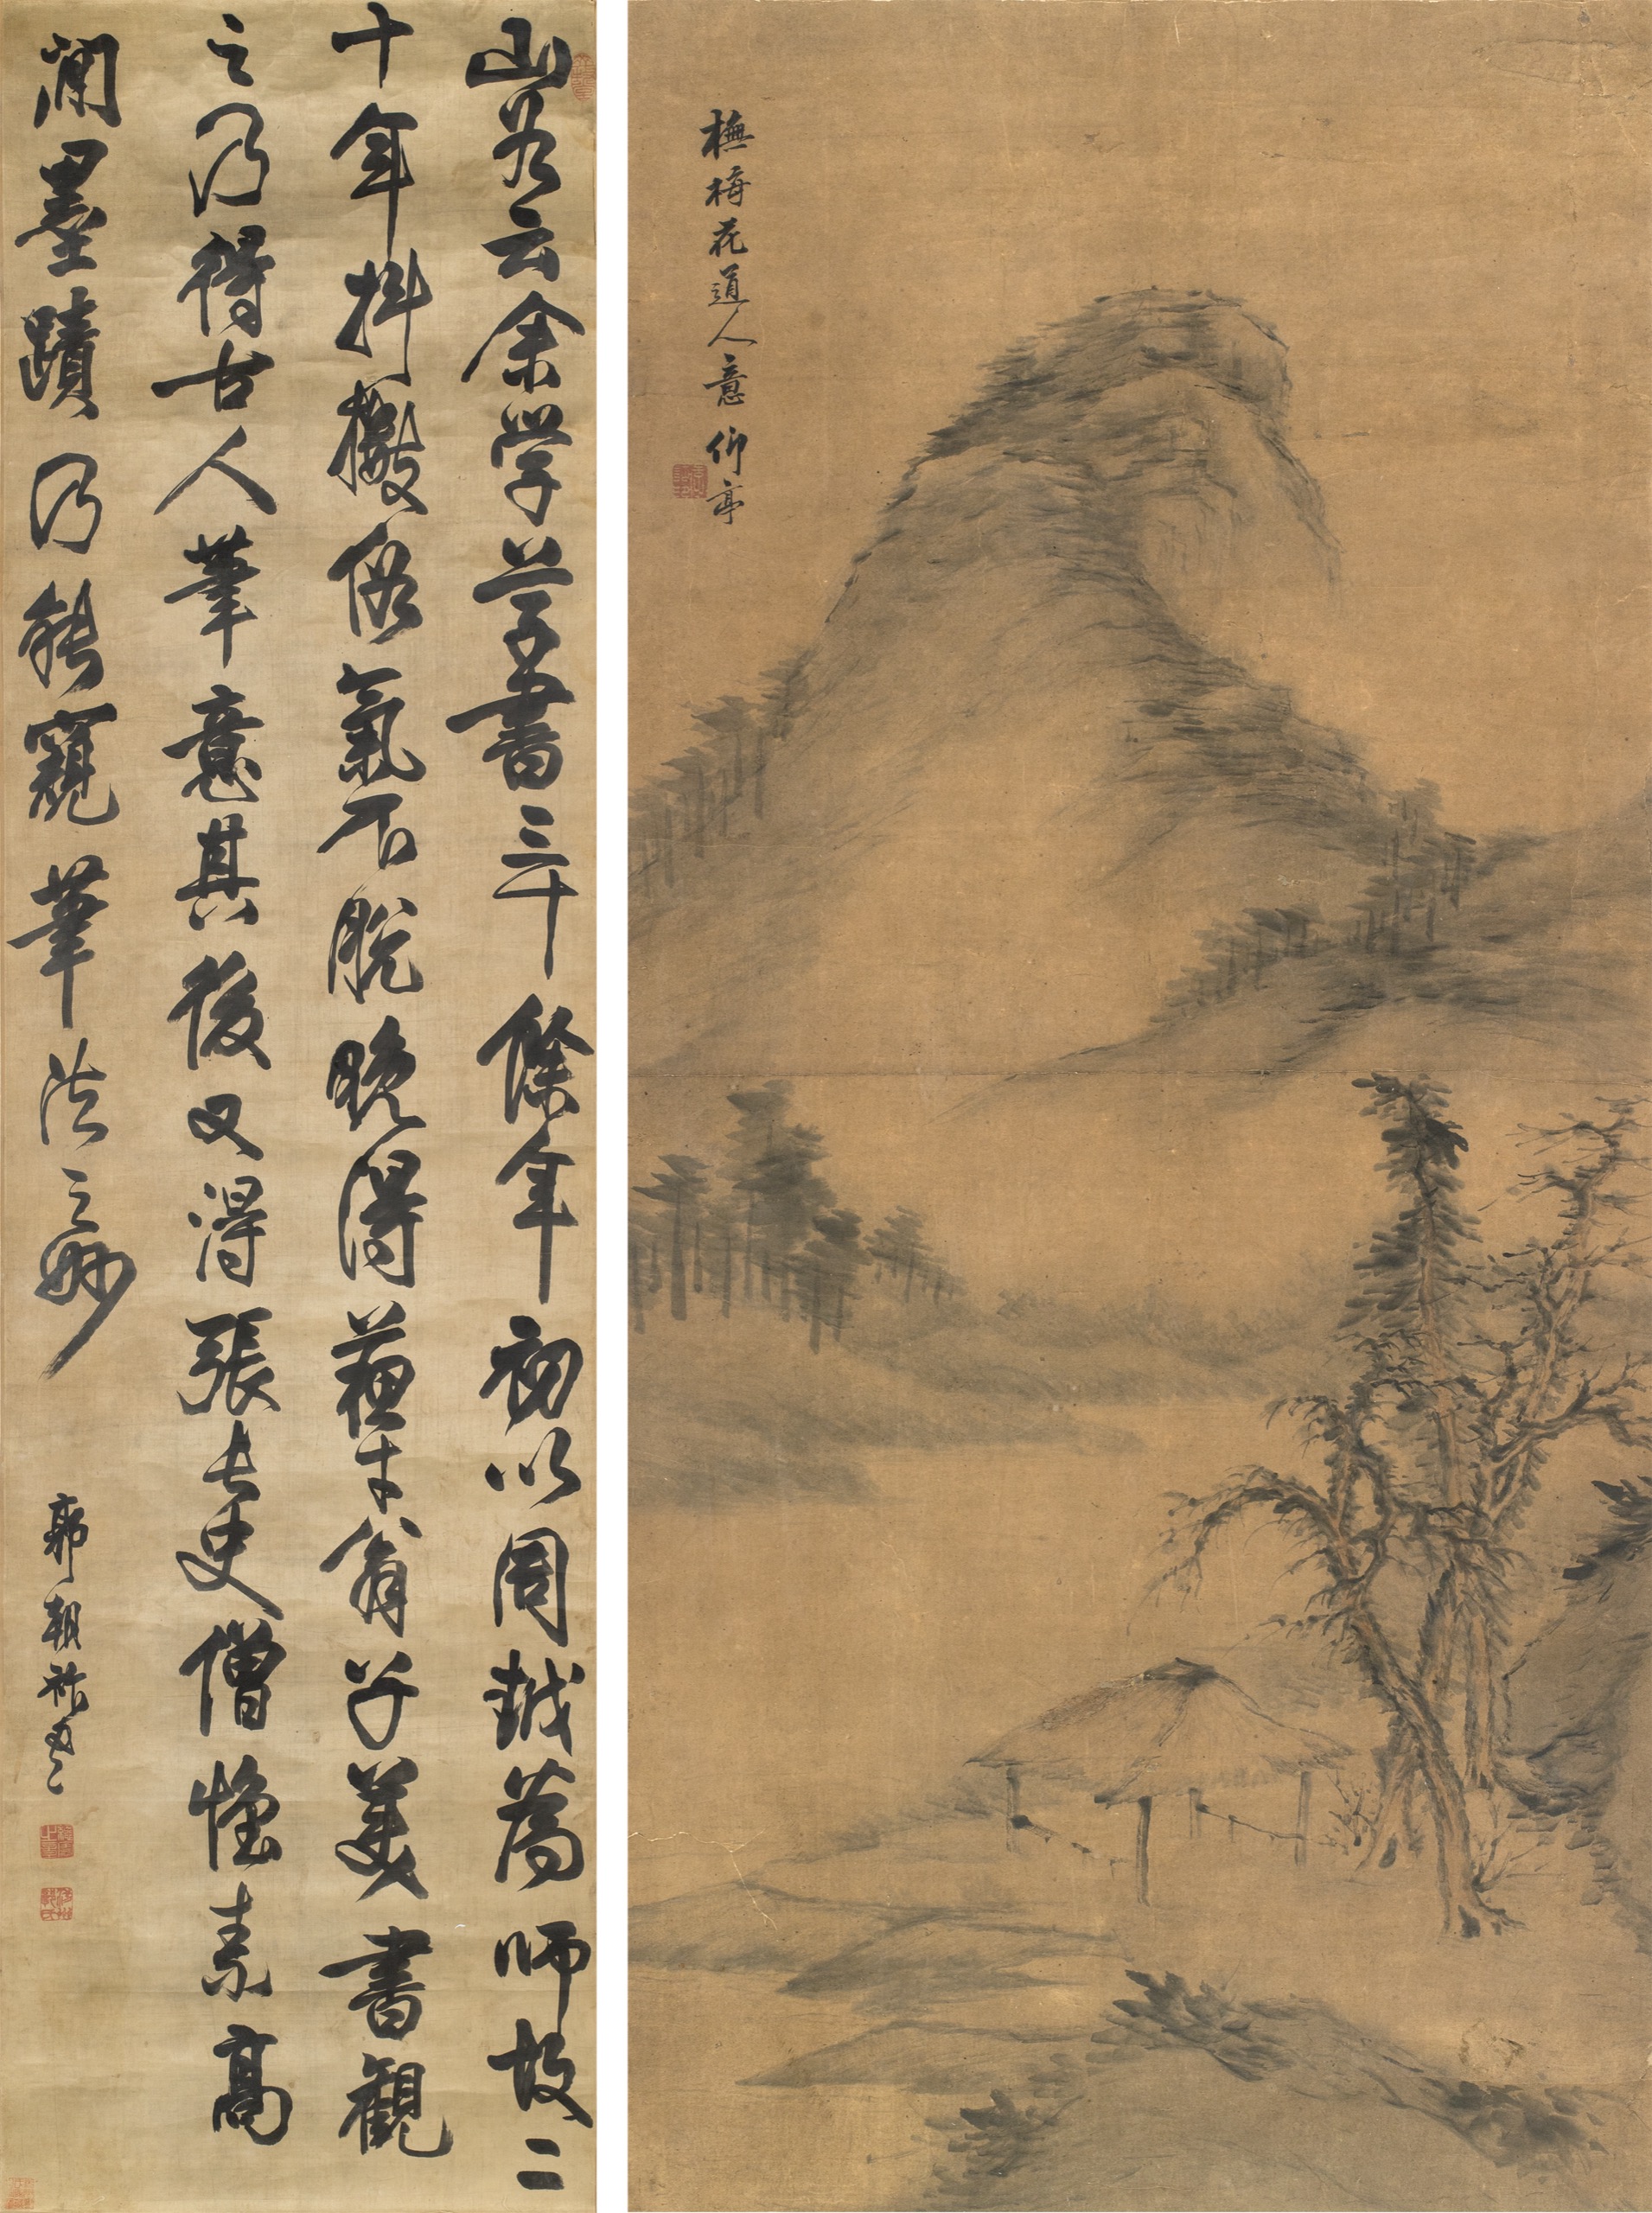 山谷云余学草書三十餘年初以周越為師故二
十年抖擻俗氣不脫晚得蘇才翁子美書觀
之乃得古人筆意其後又得張長史僧懷素高
閑墨蹟乃能窺筆法之妙
郭朝祚
橅梅花道人意 仰亭